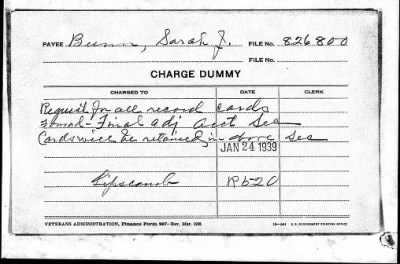 PAYEE Bunn, Sarah J. FILE No. 826800
FILE No.
CHARGE DUMMY
CHARGED TO DATE CLERK
Request for all record cards
Final adj acct Sec
Cards will be retained in above sec
JAN 24 1939
Lipscomb R620
VETERANS ADMINISTRATION, Finance Form U. S. GOVERNMENT PRINTING OFFICE